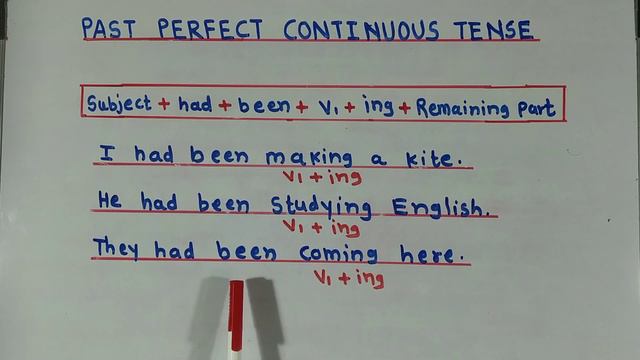 PAST PERFECT CONTINUOUS TENSE
Subject + had + been + V₁ + ing + Remaining Part
I had been making a kite.
V₁ + ing
He had been Studying English.
V₁ + ing
They had been coming here.
V₁ + ing